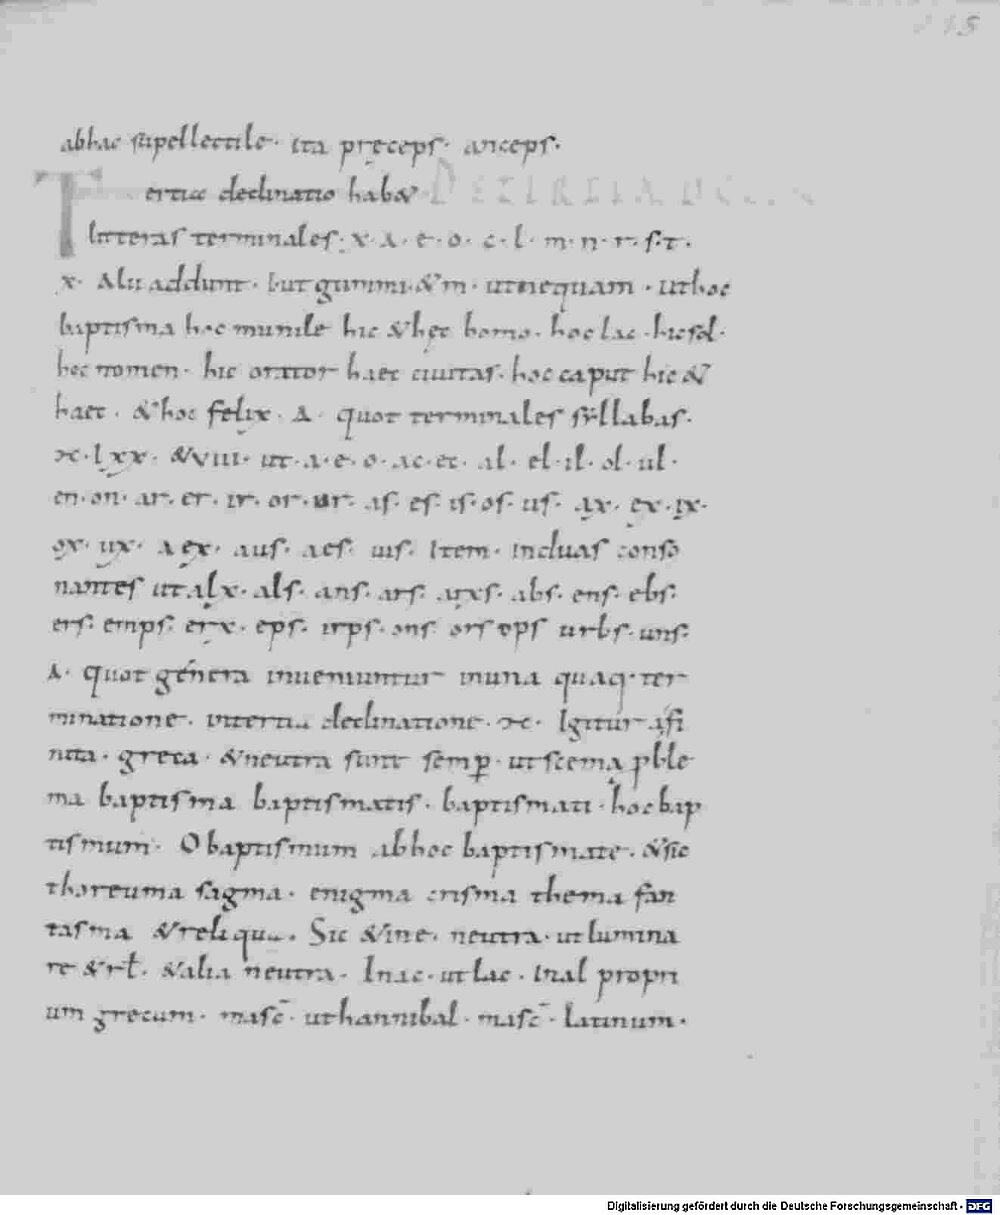 115
abhac supellectile · ita pręceps · anceps ·
Tertia declinatio hab& DE TERTIA DECL
litteras terminales · x · a · e · o · c · l · m · n · r · s · t ·
x · Alii addunt · i · ut gummi · & m · ut nequam · ut hoc
baptisma hoc munile hic & hęc homo · hoc lac · hic sol ·
hoc nomen · hic orator haec ciuitas · hoc caput hic &
haec · & hoc felix · A · quot terminales syllabas ·
lxx · & viii · ut · a · e · o · ac · ec · al · el · il · ol · ul ·
en · on · ar · er · ir · or · ur · as · es · is · os · us · ax · ex · ix ·
ox · ux · aex · aus · aes · uis · Item · incluas conso
nantes ut alx · als · ans · ars · arxs · abs · ens · ebs ·
ers · emps · erx · eps · irps · ons · ors ops urbs · uns ·
A · quot génera inueniuntur in una quaq· ter
minatione · in tertia declinatione · Igitur a fi
nita · greca · & neutra sunt semp̱ · ut scema ꝓble
ma baptisma baptismatis · baptismati · hoc bap
tismum · O baptismum ab hoc baptismate · & sic
thoreuma sagma · enigma crisma thema fan
tasma & reliqua · Sic & in e · neutra · ut lumina
re & rł · & alia neutra · In ac · ut lac · In al propri
um grecum · masc̄ · ut hannibal · masc̄ · latinum ·
Digitalisierung gefördert durch die Deutsche Forschungsgemeinschaft - DFG